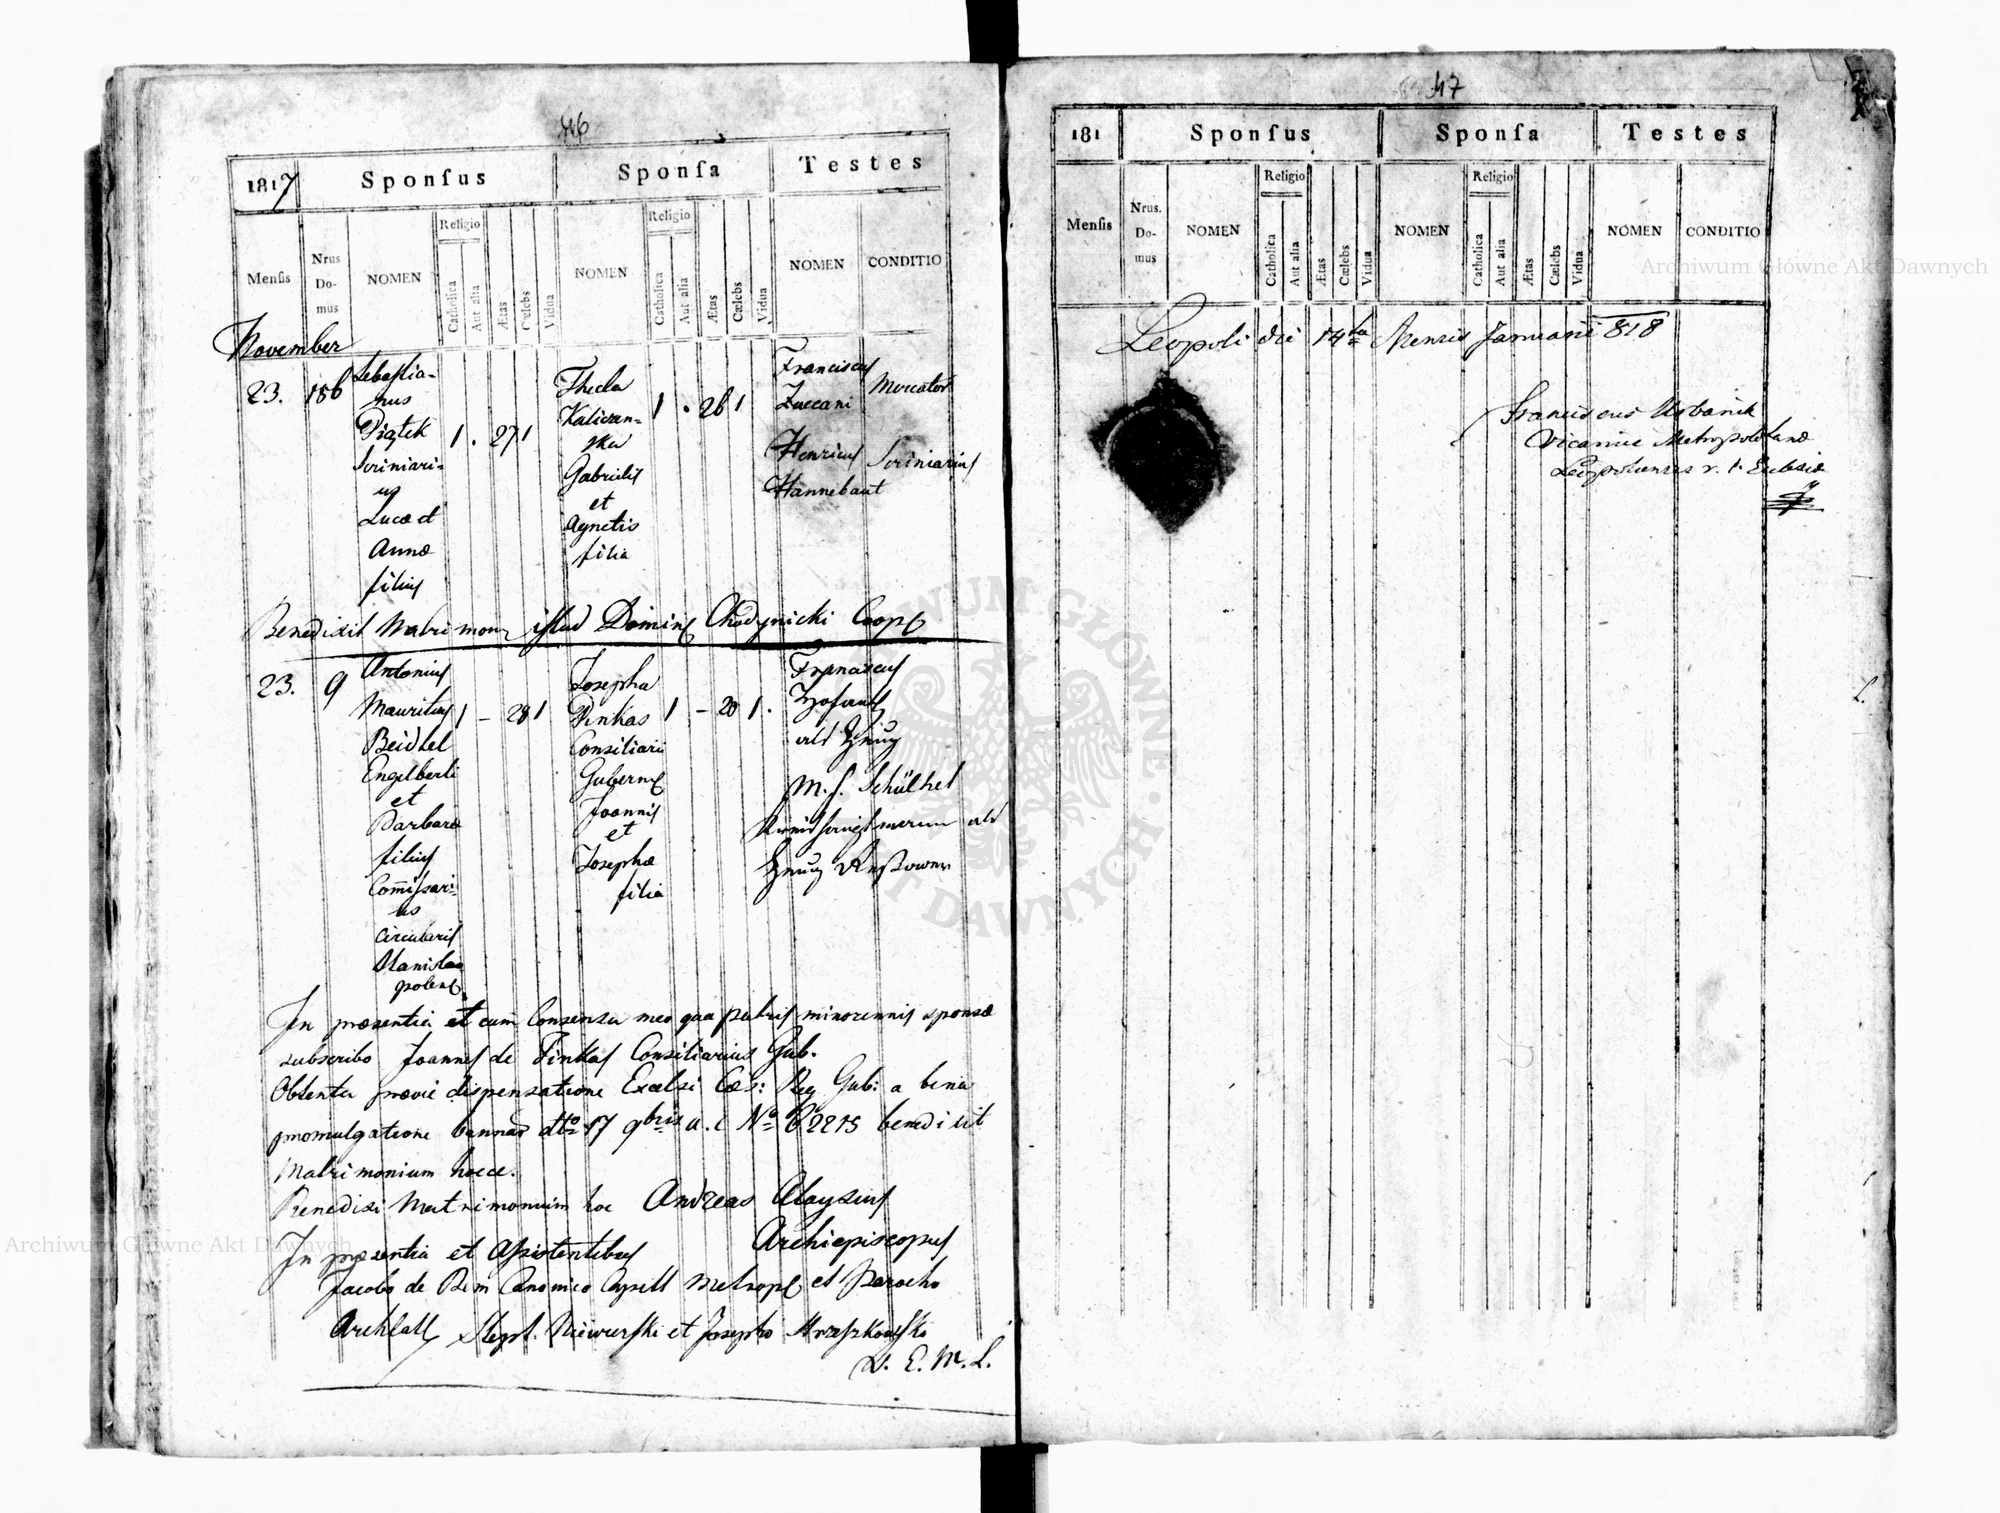 46
1817
Sponſus
Sponſa
Testes
Menſis
Nrus Do- mus
NOMEN
Religio
Catholica
Aut alia
Ætas
Cœlebs
Vidua
NOMEN
Religio
Catholica
Aut alia
Ætas
Cœlebs
Vidua
NOMEN
CONDITIO
November
23.
186
Sebastia-
nus
Piątek
Scriniari-
us
Lucæ et
Annæ
filius
1 . 27 1
Thecla
Gabrielis
et
Agnetis
filia
1 . 26 1
Franciscus
Zuccani
Mercator
Henricus
Hannebaut
Scriniarius
Benedixit Matrimon istud Domin Chodynicki Coop
23.
9
Antonius
Mauritius
Beidtel
Engelberti
et
Barbaræ
filius
Com̄issari-
us
Circularis
Stanislao
polens
1 – 28 1
Josepha
Pinkas
Consiliarii
Gubern
Joannis
et
Josephæ
filia
1 – 20 1 .
Franciscus
als
M. J.
als
In præsentia et cum Consensu meo qua patris minorennis sponsæ
subscribo Joannes de Pinkas Consiliarius Gub.
Obtenta prævie dispensatione Excelsi Cæs: Reg Gub: a bena
promulgatione bannor dtto 17 9bris a. c. No 62215 benedixit
Matrimonium hocce.
Benedixi Matrimonium hoc Andreas Aloysius
Archiepiscopus
In præsentia et Assistentibus
Jacobo de Bem Canonico Capell Metropl et Parocho
Archicatt Steph. et Josepho
V. E. M. L.
47
181
Sponſus
Sponſa
Testes
Menſis
Nrus. Do- mus
NOMEN
Religio
Catholica
Aut alia
Ætas
Cœlebs
Vidua
NOMEN
Religio
Catholica
Aut alia
Ætas
Cœlebs
Vidua
NOMEN
CONDITIO
Leopoli die 14ta Mensis Januarii 818
Franciscus Urbanik
Vicarius Metropolitanæ
Leopoliensis r. l. Ecclesiæ
Archiwum Główne Akt Dawnych
Archiwum Główne Akt Dawnych
ARCHIWUM GŁÓWNE AKT DAWNYCH